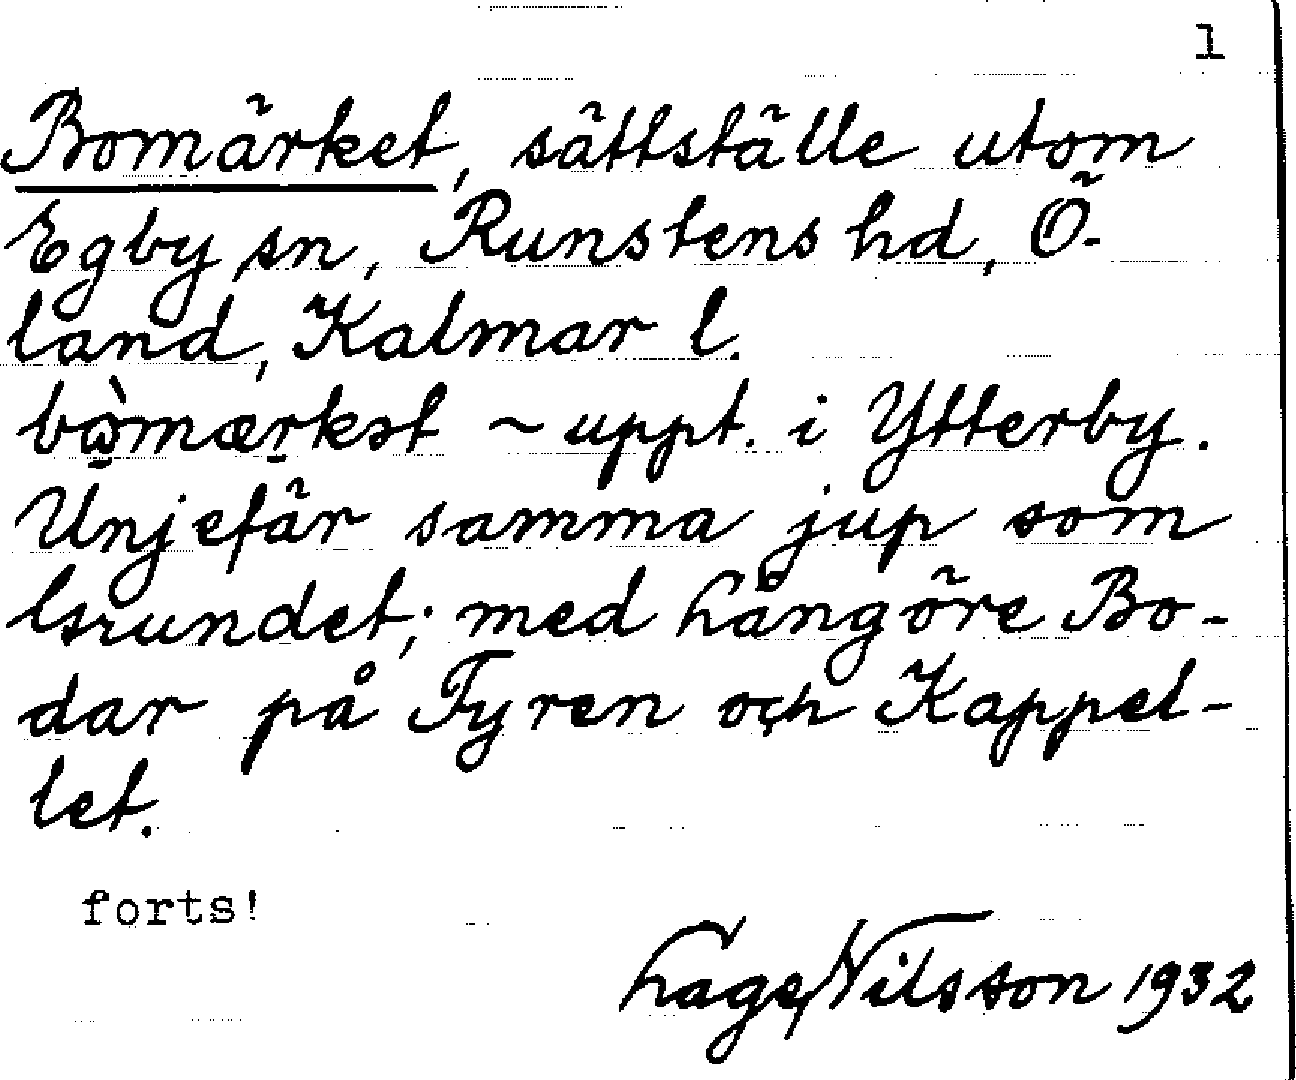 1
Bomärket, sättställe utom
Egby sn, Runstens hd, Ö-
land, Kalmar l.
bo̠̊̀mæṟkət ~ uppt. i Ytterby.
Unjefär samma jup som
Isrundet; med hångöre Bo-
dar på Fyren och Kappel-
let.
forts!
Hage Nilsson 1932